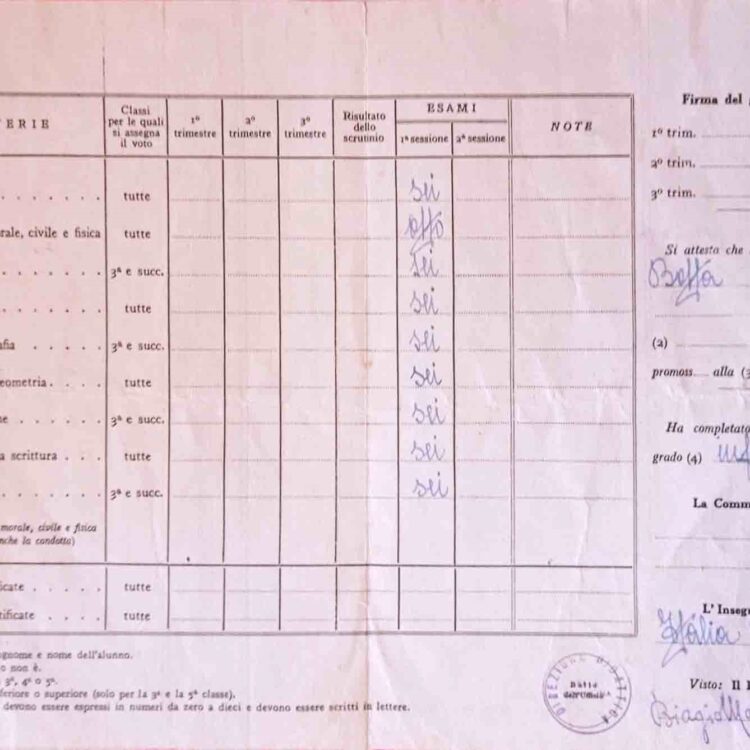 ERIE
Classi per le quali si assegna il voto
1º trimestre
2º trimestre
3º trimestre
Risultato dello scrutinio
ESAMI
1ª sessione
2ª sessione
NOTE
. . . . . . . tutte sei
rale, civile e fisica tutte
. . . . . . . 3ª e succ. sei
. . . . . . . tutte sei
afia . . . . . 3ª e succ. sei
eometria . . . . tutte sei
ne . . . . . . 3ª e succ. sei
a scrittura . . . tutte sei
. . . . . . . 3ª e succ. sei
morale, civile e fisica
nche la condotta)
icate . . . . . tutte
tificate . . . . tutte
ognome e nome dell'alunno.
o non è.
3ª, 4ª o 5ª.
feriore o superiore (solo per la 3ª e la 5ª classe).
devono essere espressi in numeri da zero a dieci e devono essere scritti in lettere.
DIREZIONE DIDATTICA
Firma del
1º trim.
2º trim.
3º trim.
Si attesta che
Boffa
(2)
promoss alla (3
Ha completato
grado (4)
La Comm
L'Inseg
Itália
Visto: Il
Biagio